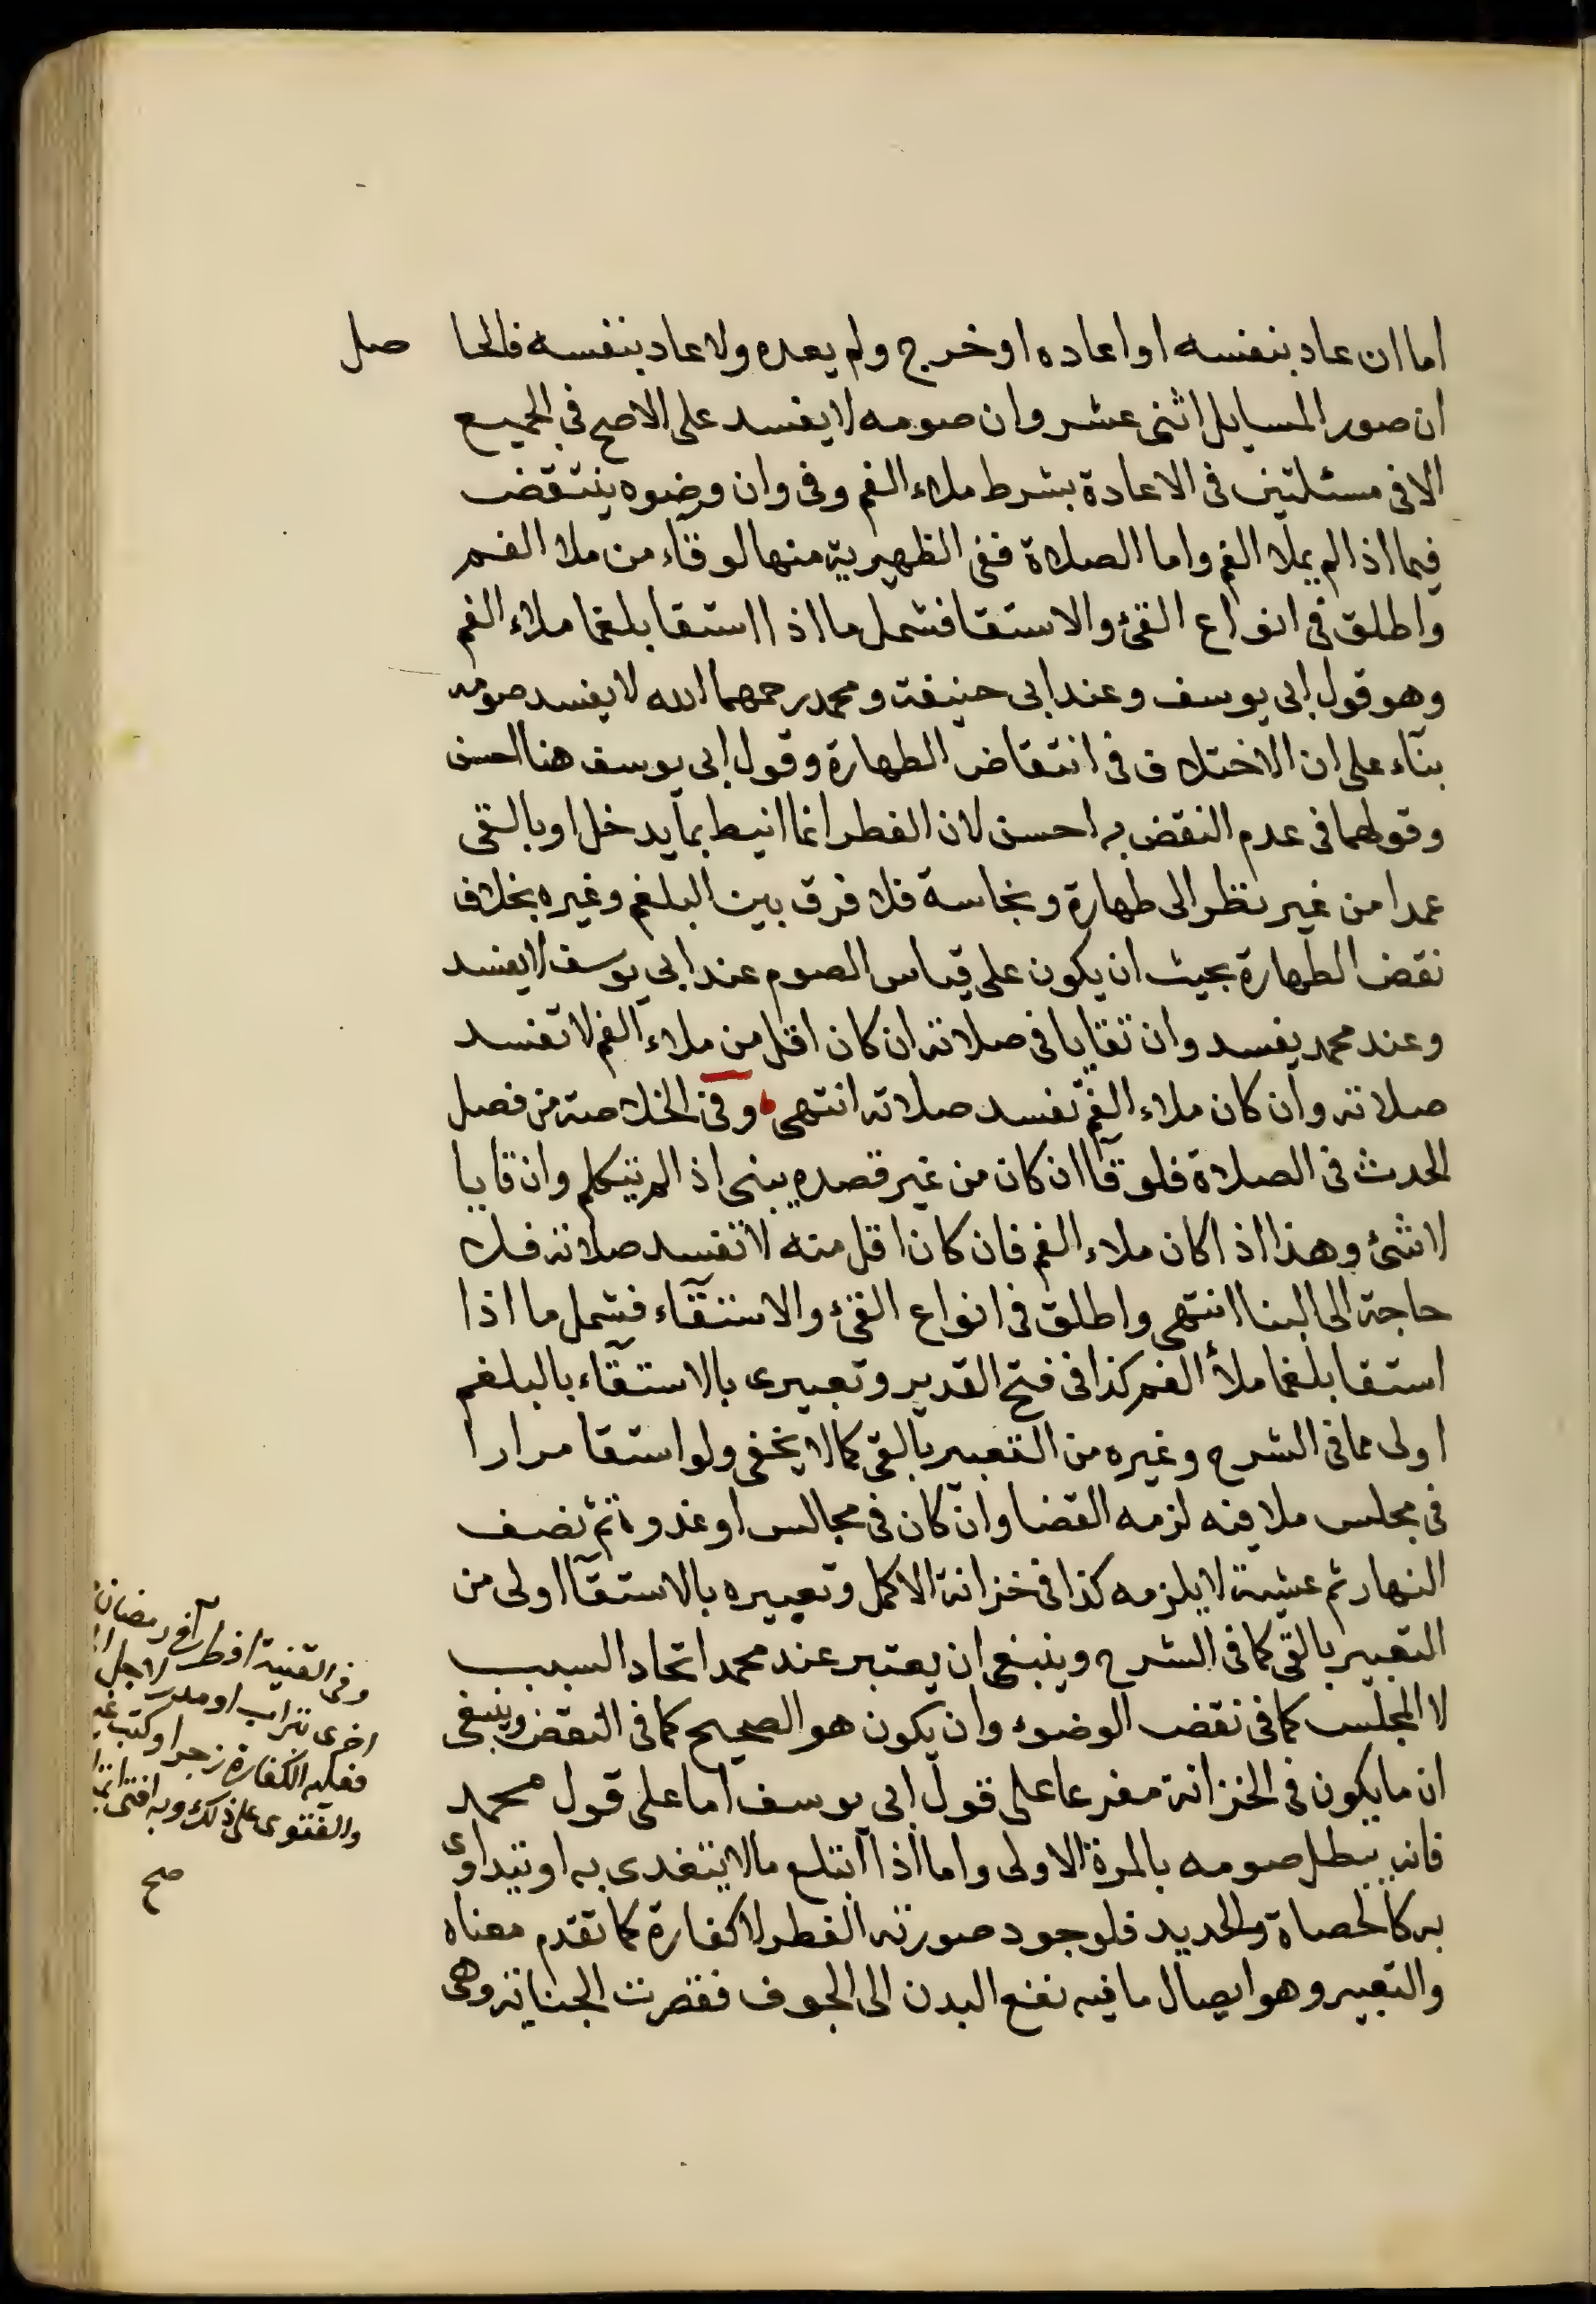 اما ان عاد بنفسه او اعاده او خرج ولم يعده ولا عاد بنفسه فالحا صل
ان صور المسايل اثنى عشر وان صومه لا يفسد على الاصح في الجميع
الا فى مسئلتين فى الاعادة بشرط ملاء الفم وفى وان وضوه ينتقض
فيما اذا لم يملا الفم واما الصلاة ففى الظهيرية منها لو قاء من ملا الفم
واطلق فى انواع القئ والاستقا فشمل ما اذا استقا بلغما ملاء الفم
وهو قول ابى يوسف وعند ابى حنيفة ومحمد رحمهما الله لا يفسد صومه
بناء على ان الاختلاف فى انتقاض الطهارة وقول ابى يوسف هنا احسن
وقولهما فى عدم النقض به احسن لان الفطر انما انيط بما يدخل او بالقى
عمدا من غير نظر الى طهارة ونجاسة فلا فرق بين البلغم وغيره بخلاف
نقض الطهارة بحيث ان يكون على قياس الصوم عند ابى يوسف لا يفسد
وعند محمد يفسد وان تقايا فى صلاته ان كان اقل من ملاء الفم لا تفسد
صلاته وان كان ملاء الفم تفسد صلاته انتهى وفى الخلاصة من فصل
الحدث فى الصلاة فلو قآ ان كان من غير قصده يبنى اذ الم يتكلم وان قايا
لاشئ وهذا اذا كان ملاء الفم فان كان اقل منه لا تفسد صلاته فلا
حاجة الى البنا انتهى واطلق فى انواع القئ والاستقآء فشمل ما اذا
استقا بلغما ملأ الفم كذا فى فتح القدير وتعبيرى بالاستقآء بالبلغم
اولى مما فى الشرح وغيره من التعبير بالقى كما لا يخفى ولو استقا مرارا
فى مجلس ملا فيه لزمه القضا وان كان فى مجالس او غدوة ثم نصف
النهار ثم عشية لا يلزمه كذا فى خزانة الاكمل وتعبيره بالاستقآ اولى من
التعبير بالقى كما فى الشرح وينبغى ان يعتبر عند محمد اتحاد السبب
لا المجلس كما فى نقض الوضوء وان يكون هو الصحيح كما فى النقض وينبغى
ان ما يكون فى الخزانة مفرعا على قول ابى يوسف اما على قول محمد
فانه يبطل صومه بالمرة الاولى واما اذا ابتلع مالا يتغدى به او يتداوى
به كالحصاة والحديد فلوجود صورته الفطر لا كفارة كما تقدم معناه
والتعبير وهو ايصال ما فيه نفع البدن الى الجوف فقصرت الجناية وهى
وفى القنية افطر فى رمضان
اخرى بتراب او مدر لاجل
فعليه الكفارة زجرا او كتب
والفتوى على ذلك وبه افتى
صح